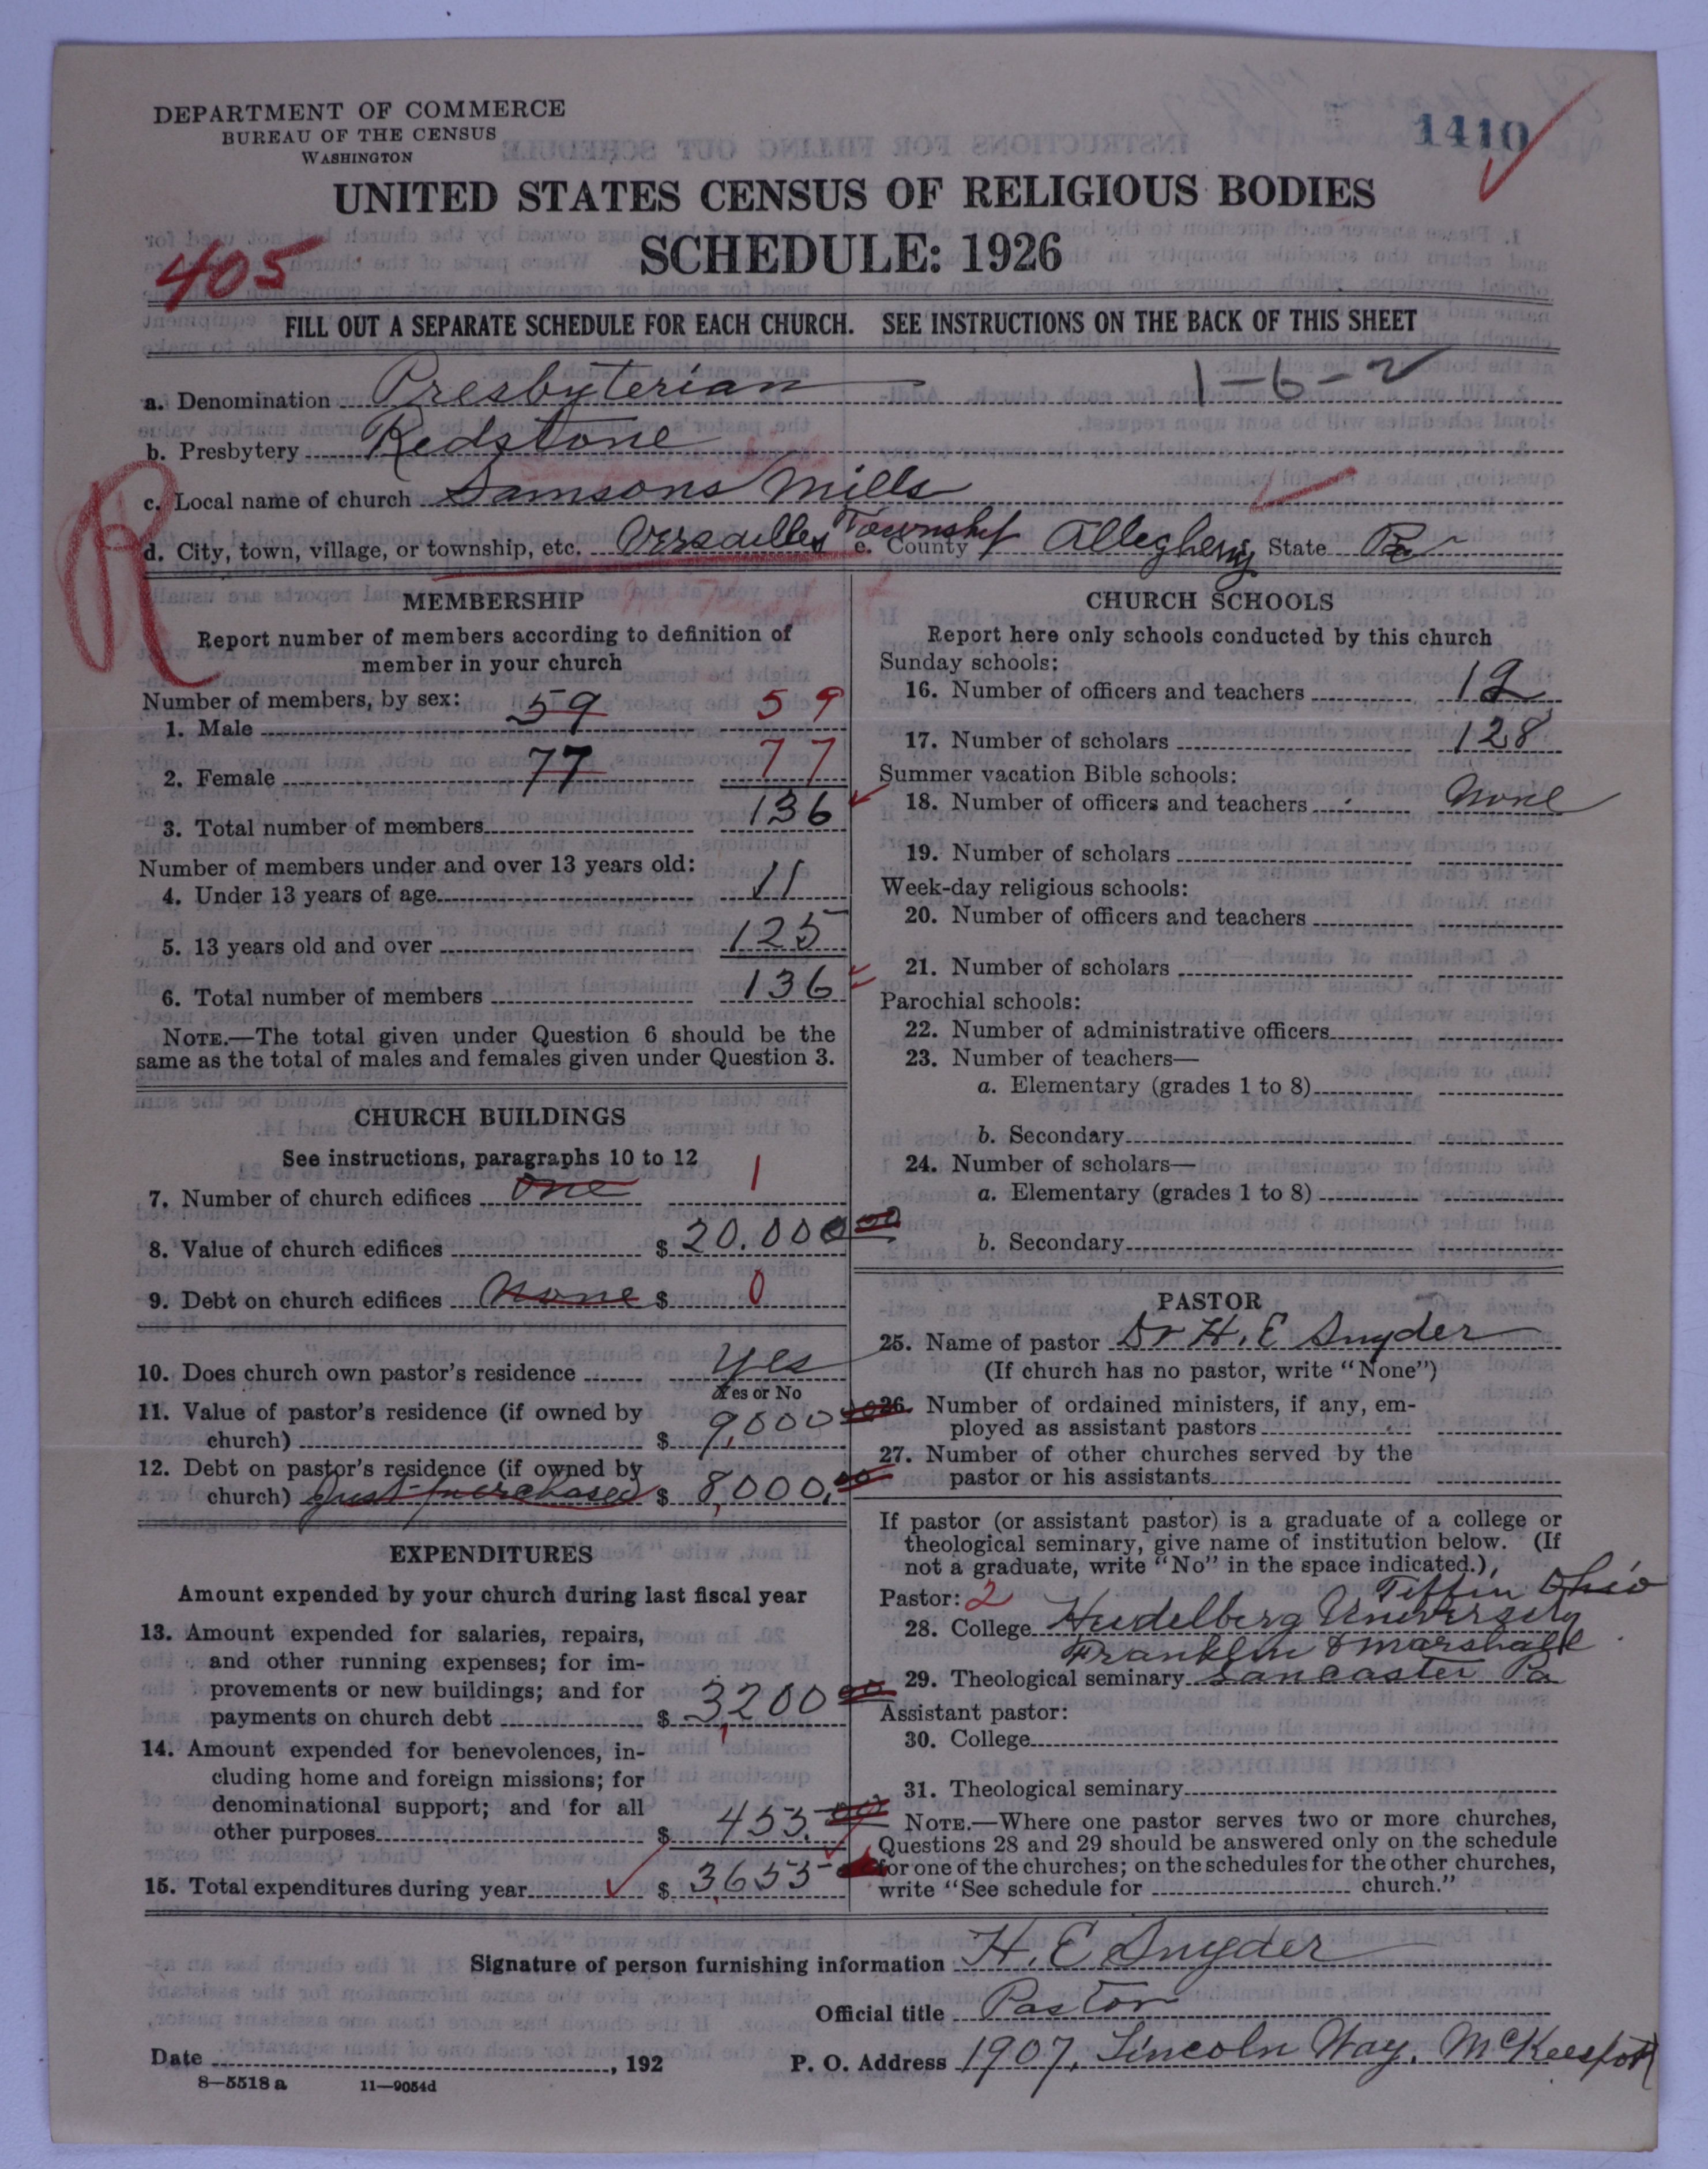 DEPARTMENT OF COMMERCE
BUREAU OF THE CENSUS
WASHINGTON
1410
UNITED STATES CENSUS OF RELIGIOUS BODIES
SCHEDULE: 1926
405
FILL OUT A SEPARATE SCHEDULE FOR EACH CHURCH. SEE INSTRUCTIONS ON THE BACK OF THIS SHEET
1-6-2
a. Denomination Presbyterian
b. Presbytery Redstone
c. Local name of church Samsons Mills
d. City, town, village, or township, etc. Versailles Township e. County Allegheny State Pa
R
MEMBERSHIP
Report number of members according to definition of
member in your church
Number of members, by sex:
1. Male 59 59
2. Female 77 77
3. Total number of members 136
Number of members under and over 13 years old:
4. Under 13 years of age 11
5. 13 years old and over 125
6. Total number of members 136
NOTE.—The total given under Question 6 should be the
same as the total of males and females given under Question 3.
CHURCH BUILDINGS
See instructions, paragraphs 10 to 12
7. Number of church edifices one 1
8. Value of church edifices $ 20.000 00
9. Debt on church edifices None $ 0
10. Does church own pastor's residence yes
Yes or No
11. Value of pastor's residence (if owned by
church) $ 9,000 00
12. Debt on pastor's residence (if owned by
church) Just purchased $ 8,000. 00
EXPENDITURES
Amount expended by your church during last fiscal year
13. Amount expended for salaries, repairs,
and other running expenses; for im-
provements or new buildings; and for
payments on church debt $ 3,200 00
14. Amount expended for benevolences, in-
cluding home and foreign missions; for
denominational support; and for all
other purposes $ 453. 00
15. Total expenditures during year $ 3,653
CHURCH SCHOOLS
Report here only schools conducted by this church
Sunday schools:
16. Number of officers and teachers 12
17. Number of scholars 128
Summer vacation Bible schools:
18. Number of officers and teachers None
19. Number of scholars
Week-day religious schools:
20. Number of officers and teachers
21. Number of scholars
Parochial schools:
22. Number of administrative officers
23. Number of teachers—
a. Elementary (grades 1 to 8)
b. Secondary
24. Number of scholars—
a. Elementary (grades 1 to 8)
b. Secondary
PASTOR
25. Name of pastor Dr H. E Snyder
(If church has no pastor, write "None")
26. Number of ordained ministers, if any, em-
ployed as assistant pastors
27. Number of other churches served by the
pastor or his assistants
If pastor (or assistant pastor) is a graduate of a college or
theological seminary, give name of institution below. (If
not a graduate, write "No" in the space indicated.)
Pastor: 2 Tiffin Ohio
28. College Heidelberg University
Franklin & Marshall
29. Theological seminary Lancaster Pa
Assistant pastor:
30. College
31. Theological seminary
NOTE.—Where one pastor serves two or more churches,
Questions 28 and 29 should be answered only on the schedule
for one of the churches; on the schedules for the other churches,
write "See schedule for church."
Signature of person furnishing information H. E Snyder
Official title Pastor
Date , 192 P. O. Address 1907, Lincoln Way, McKeesport
8-5518 a 11-9054d